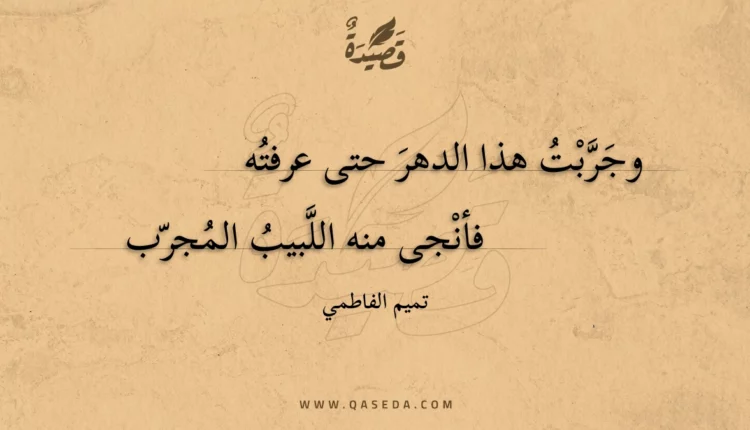 قَصِيْدَةٌ
وجَرَّبْتُ هذا الدهرَ حتى عرفتُه
فأنْجى منه اللَّبيبُ المُجرّب
تميم الفاطمي
WWW.QASEDA.COM